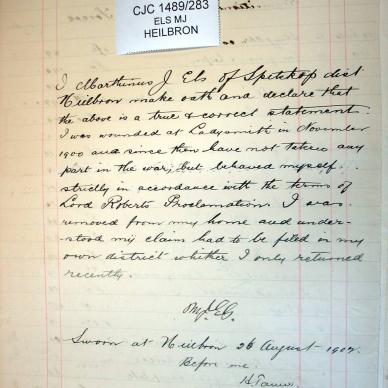 CJC 1489/283
ELS MJ
HEILBRON
I Marthinus J Els of Spitzkop dist
Heilbron make oath and declare that
the above is a true & correct statement.
I was wounded at Ladysmith in November
1900 and since then have not taken any
part in the war, but behaved myself
strictly in accordance with the terms of
Lord Roberts Proclamation. I was
removed from my home and under-
stood my claim had to be filed in my
own district whether I only returned
recently.
Sworn at Heilbron 26 August 1902.
Before me